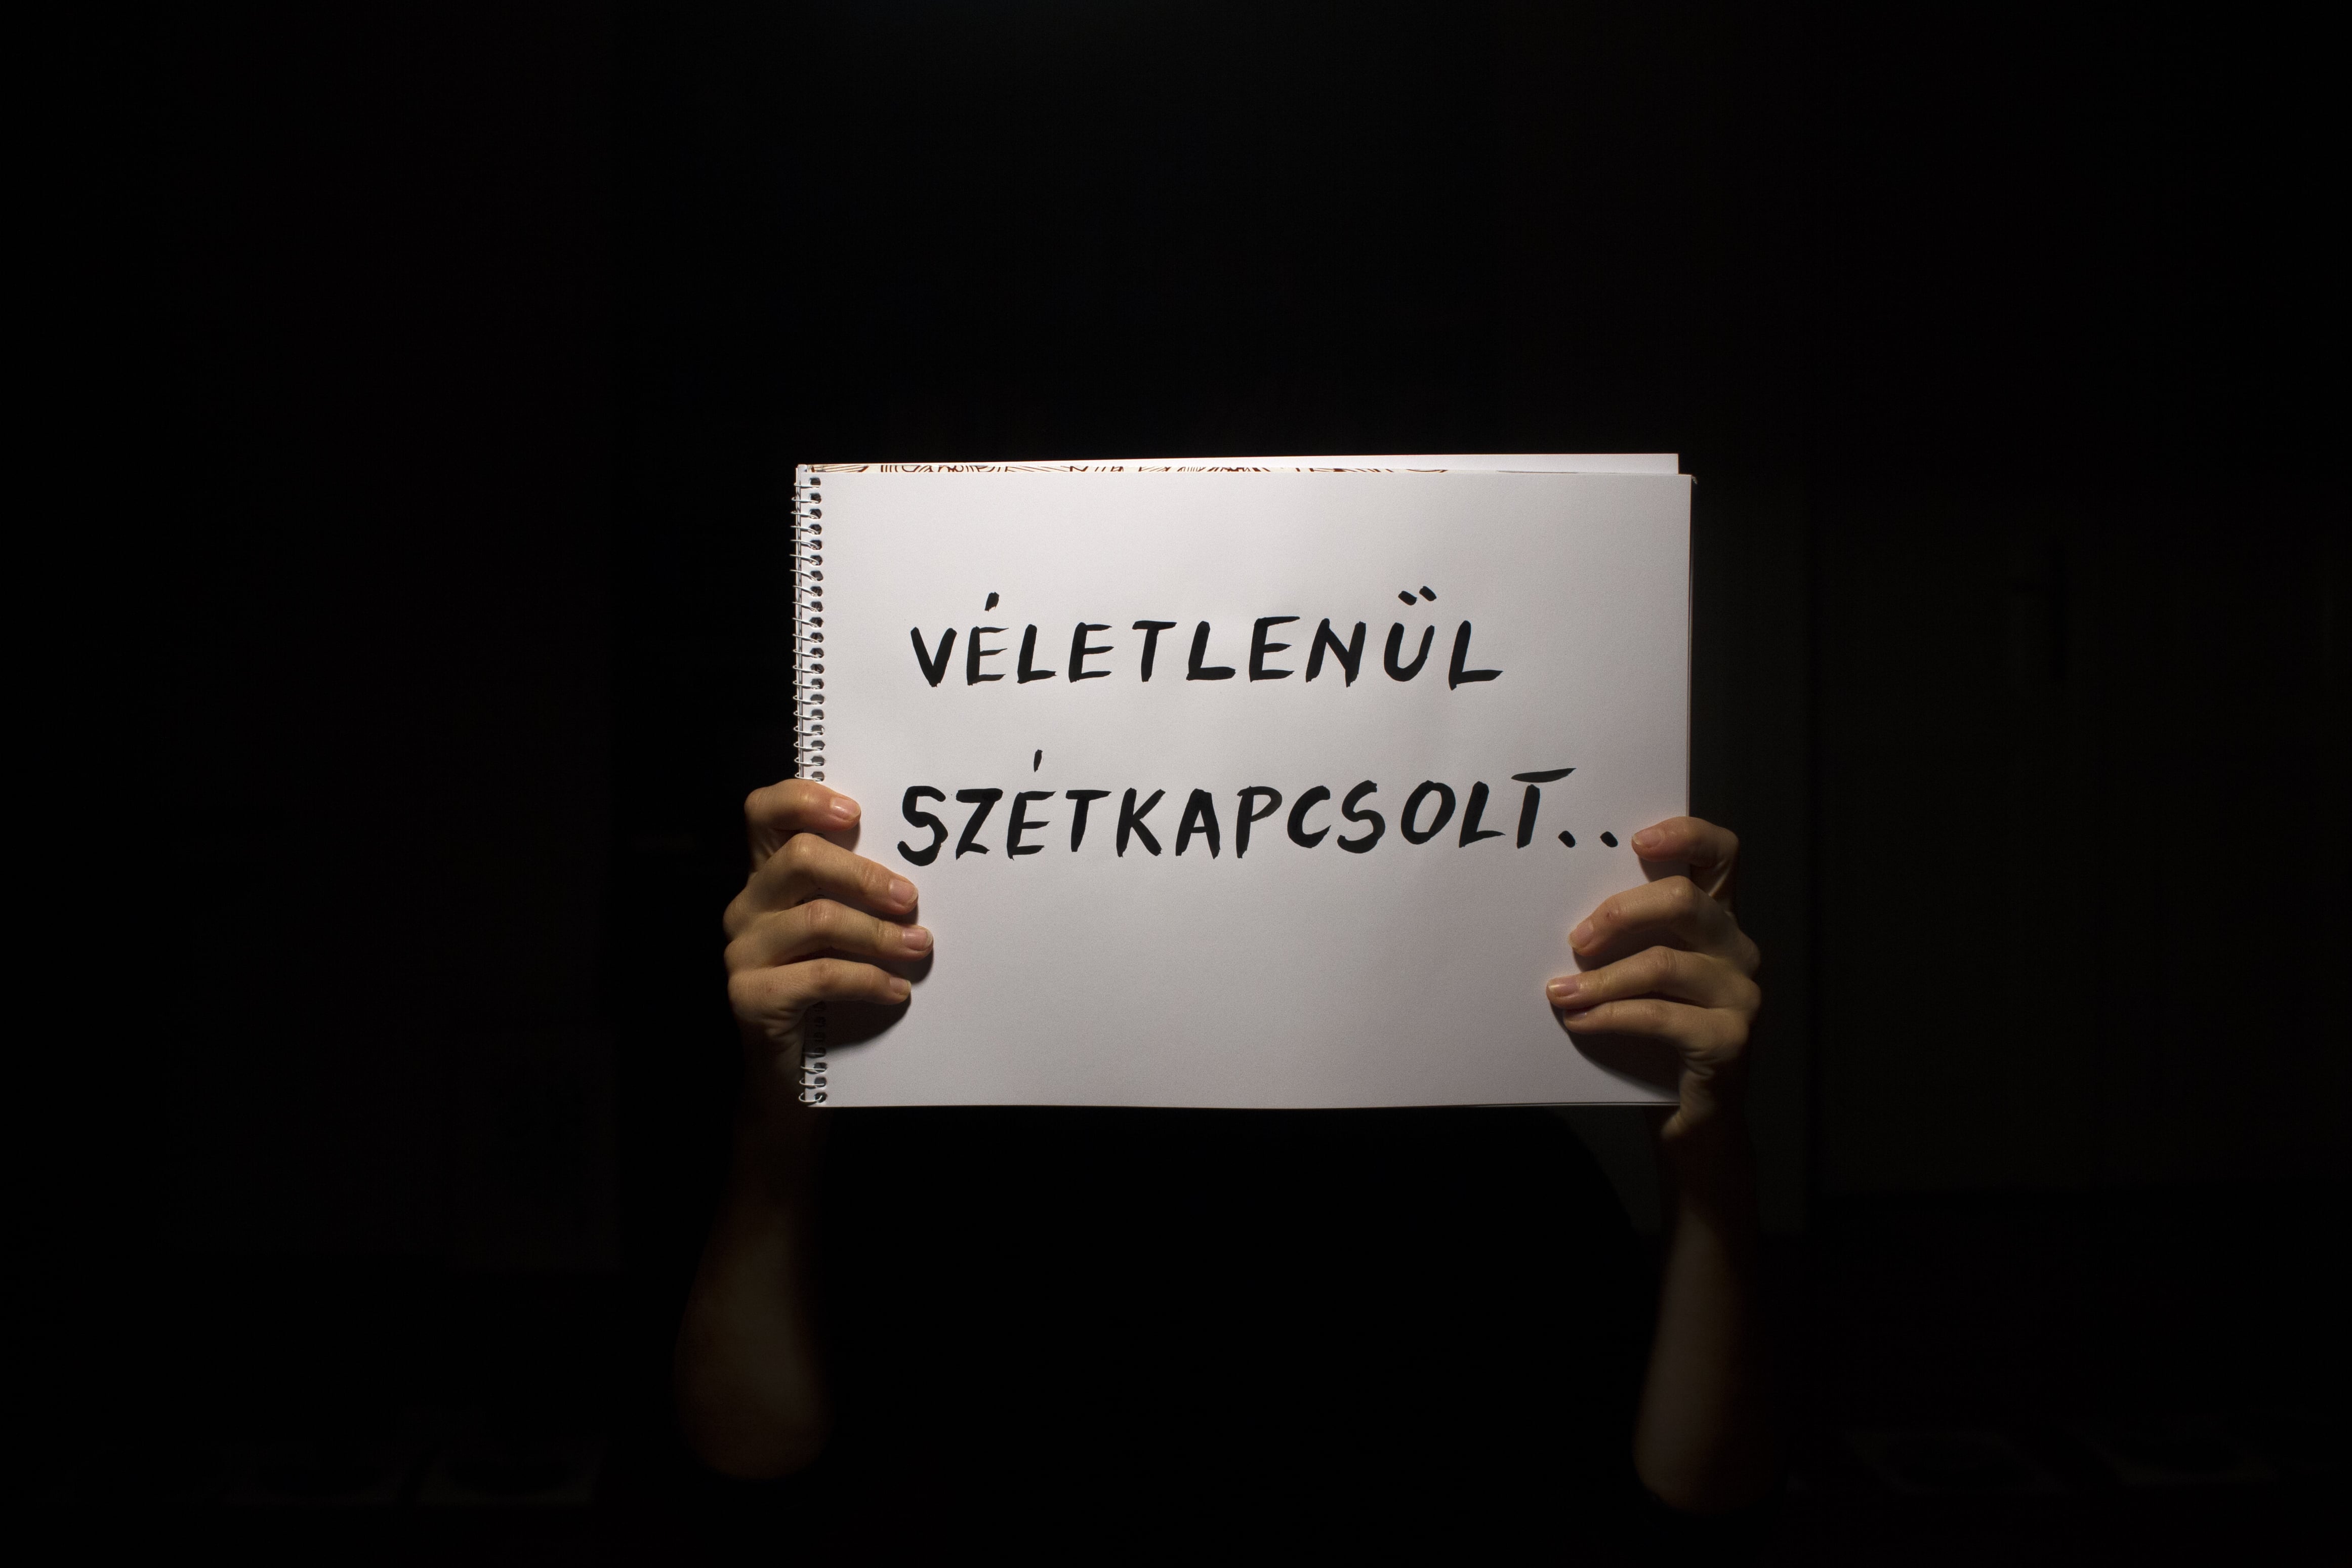 VÉLETLENÜL
SZÉTKAPCSOLT..